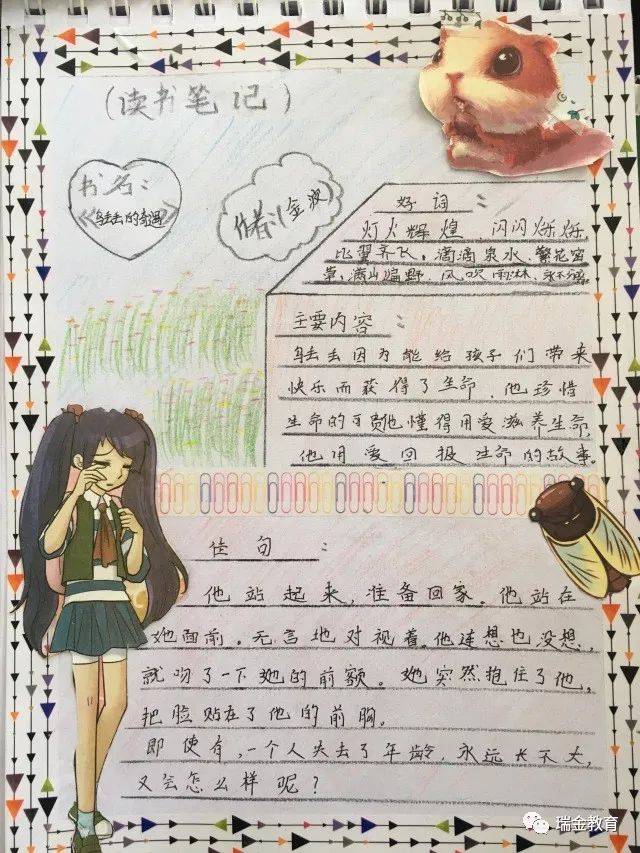 (读书笔记)
书名:
《乌丢丢的奇遇》
作者:金波
好词:
灯火辉煌 闪闪烁烁,
比翼齐飞,滴滴泉水,繁花
草,满山遍野,风吹雨淋,永不
主要内容:
乌丢丢因为能给孩子们带来
快乐而获得了生命,他珍惜
生命的可贵他懂得用爱滋养生命,
他用爱回报生命的故事。
佳句:
他站起来,准备回家。他站在
她面前。无言地对视着。他连想也没想,
就吻了一下她的前额。她突然抱住了他,
把脸贴在了他的前胸。
即使有,一个人失去了年龄,永远长不大,
又会怎么样呢?
瑞金教育